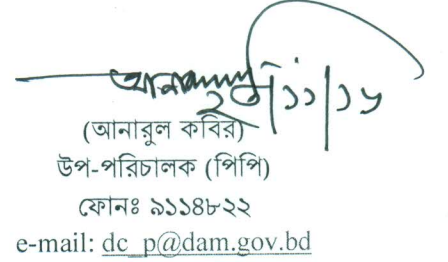 (আনারুল কবির)
উপ-পরিচালক (পিপি)
ফোনঃ ৯১১৪৮২২
e-mail: dc_p@dam.gov.bd